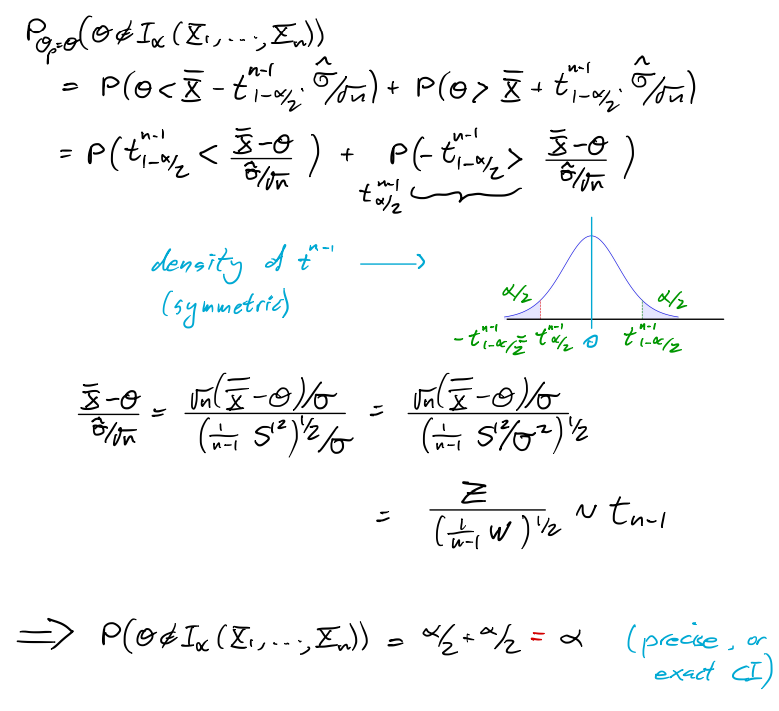 P_{Θ_p=θ}(θ ∉ I_α (X_1, ..., X_n))
= P(θ < X̄ - t^{n-1}_{1-α/2} · σ̂/√n) + P(θ > X̄ + t^{n-1}_{1-α/2} · σ̂/√n)
= P(t^{n-1}_{1-α/2} < (X̄-θ)/(σ̂/√n)) + P(-t^{n-1}_{1-α/2} > (X̄-θ)/(σ̂/√n))
t^{n-1}_{α/2}
density of t^{n-1} ⟶
(symmetric)
α/2 α/2
-t^{n-1}_{1-α/2} = t^{n-1}_{α/2} 0 t^{n-1}_{1-α/2}
(X̄-θ)/(σ̂/√n) = (√n(X̄-θ)/σ)/((1/(n-1) S'^2)^{1/2}/σ) = (√n(X̄-θ)/σ)/((1/(n-1) S'^2/σ^2)^{1/2})
= Z/((1/(n-1) W)^{1/2}) ~ t_{n-1}
⟹ P(θ ∉ I_α (X_1, ..., X_n)) = α/2 + α/2 = α (precise, or
exact CI)